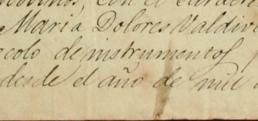 con el caracter
Maria Dolores Valdivi
colo de instrumentos y
desde el año de mil